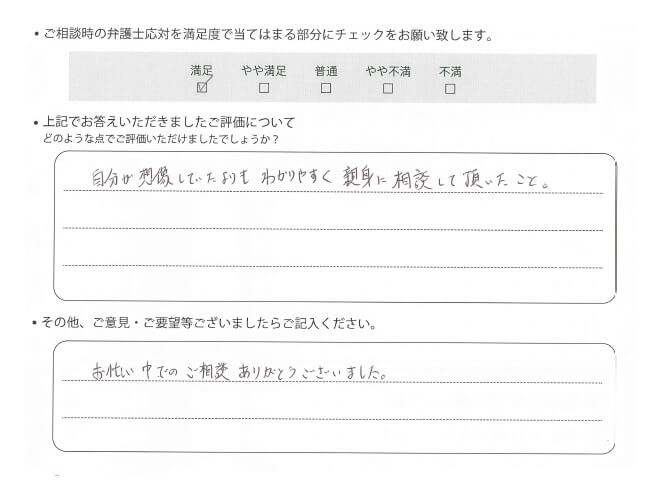 • ご相談時の弁護士応対を満足度で当てはまる部分にチェックをお願い致します。
満足 やや満足 普通 やや不満 不満
☑ □ □ □ □
• 上記でお答えいただきましたご評価について
どのような点でご評価いただけましたでしょうか？
自分が想像していたよりも わかりやすく 親身に 相談して頂いたこと。
• その他、ご意見・ご要望等ございましたらご記入ください。
お忙い中でのご相談ありがとうございました。